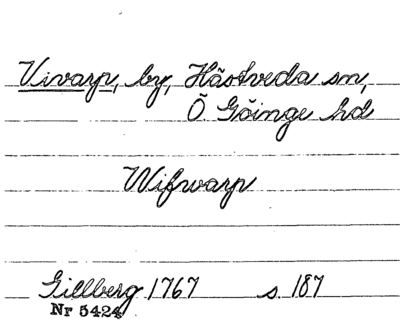 Vivarp, by, Hästveda sn,
Ö. Göinge hd
Wifwarp
Gillberg 1767 s. 187
Nr 5424